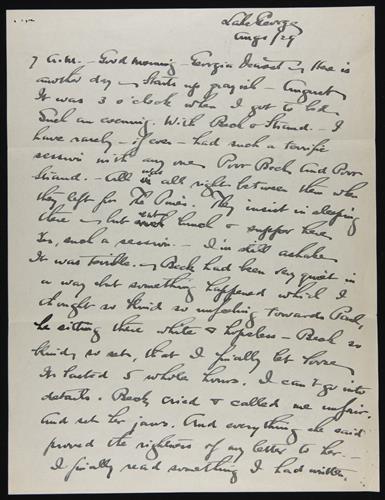 Lake George
Aug 5/29
7 A.M. — Good morning — Georgia Dearest — Here is
another day — Starts up grayish — August
It was 3 o'clock when I got to bed.
Such an evening. With Beck & Strand. — I
have rarely — if ever — had such a terrific
session with any one. Poor Beck and Poor
Strand. — All was all right between them when
they left for The Pines. They insist in sleeping
there — but eat lunch & supper here
Yes, such a session — I'm still ashake
It was terrible. — Beck had been very quiet in
a way but something happened which I
thought so blind so unfeeling towards Paul,
he sitting there white & hopeless — Beck so
blindly so set, that I finally let loose
It lasted 5 whole hours. I can't go into
details. Beck cried & called me unfair.
And set her jaws. And everything she said
proved the rightness of my letter to her. —
I finally read something I had written